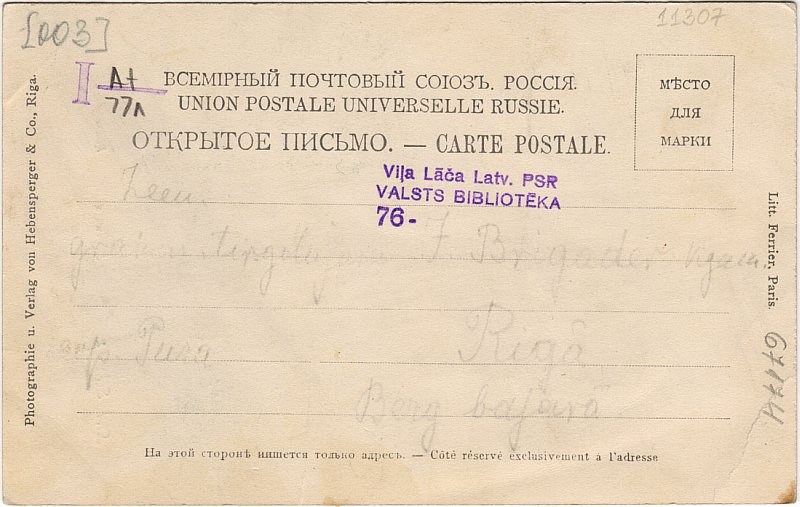 [003]
11307
I At
77л
ВСЕМІРНЫЙ ПОЧТОВЫЙ СОЮЗЪ. РОССІЯ.
UNION POSTALE UNIVERSELLE RUSSIE.
ОТКРЫТОЕ ПИСЬМО. — CARTE POSTALE.
МѢСТО
ДЛЯ
МАРКИ
Viļa Lāča Latv. PSR
VALSTS BIBLIOTĒKA
76-
J. Brigader kgam.
Rīgâ
Berg bazarâ
На этой сторонѣ пишется только адресъ. — Côté réservé exclusivement à l'adresse
Photographie u. Verlag von Hebensperger & Co., Riga.
Litt. Ferrier, Paris.